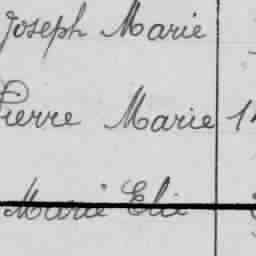 Joseph Marie
Pierre Marie
Marie Elie